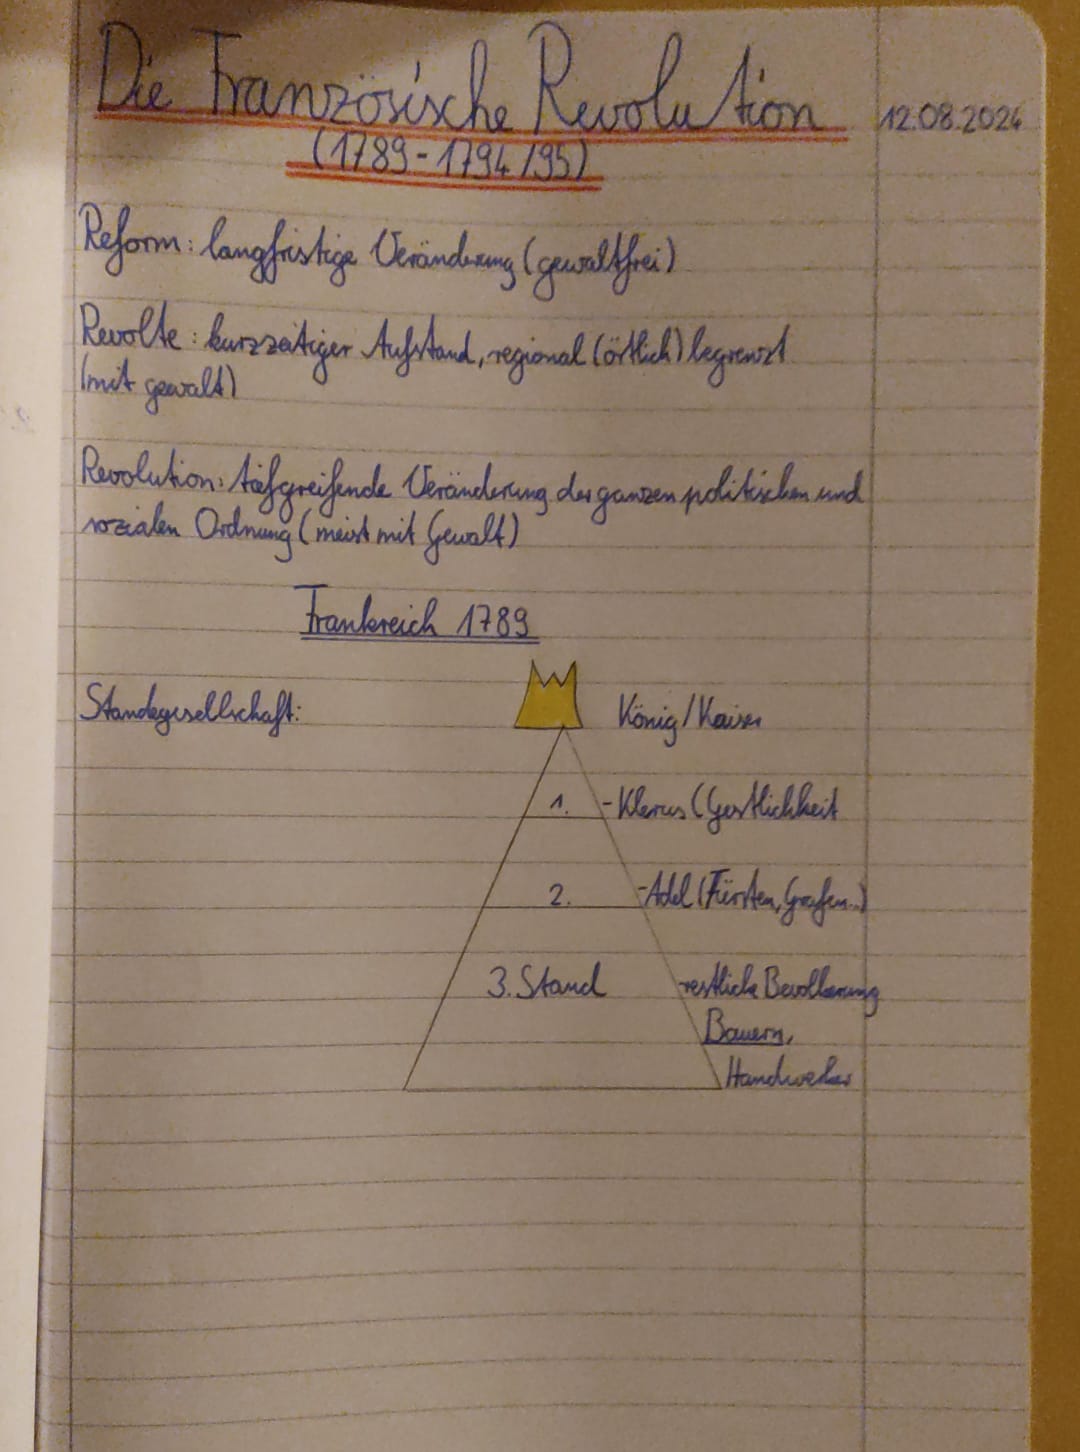 Die Französische Revolution
12.08.2024
(1789-1794/95)
Reform: langfristige Veränderung (gewaltfrei)
Revolte: kurzzeitiger Aufstand, regional (örtlich) begrenzt
(mit gewalt)
Revolution: tiefgreifende Veränderung der ganzen politischen und
sozialen Ordnung (meist mit Gewalt)
Frankreich 1789
Standegesellschaft:
König/Kaiser
1. -Klerus (Gestlichkeit
2. -Adel (Fürsten, Grafen..)
3. Stand restliche Bevolkerung
Bauern,
Handwerker